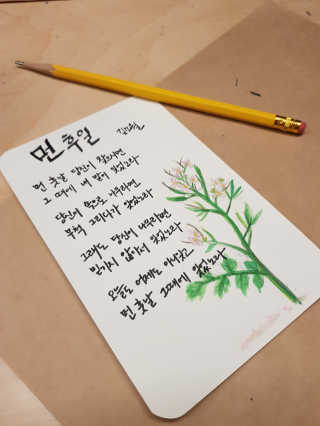 먼 후일
김소월
먼 훗날 당신이 찾으면
그 때에 내 말이 잊었노라
당신이 속으로 나무라면
무척 그리다가 잊었노라
그래도 당신이 나무라면
믿기지 않아서 잊었노라
오늘도 어제도 아니잊고
먼 훗날 그때에 잊었노라